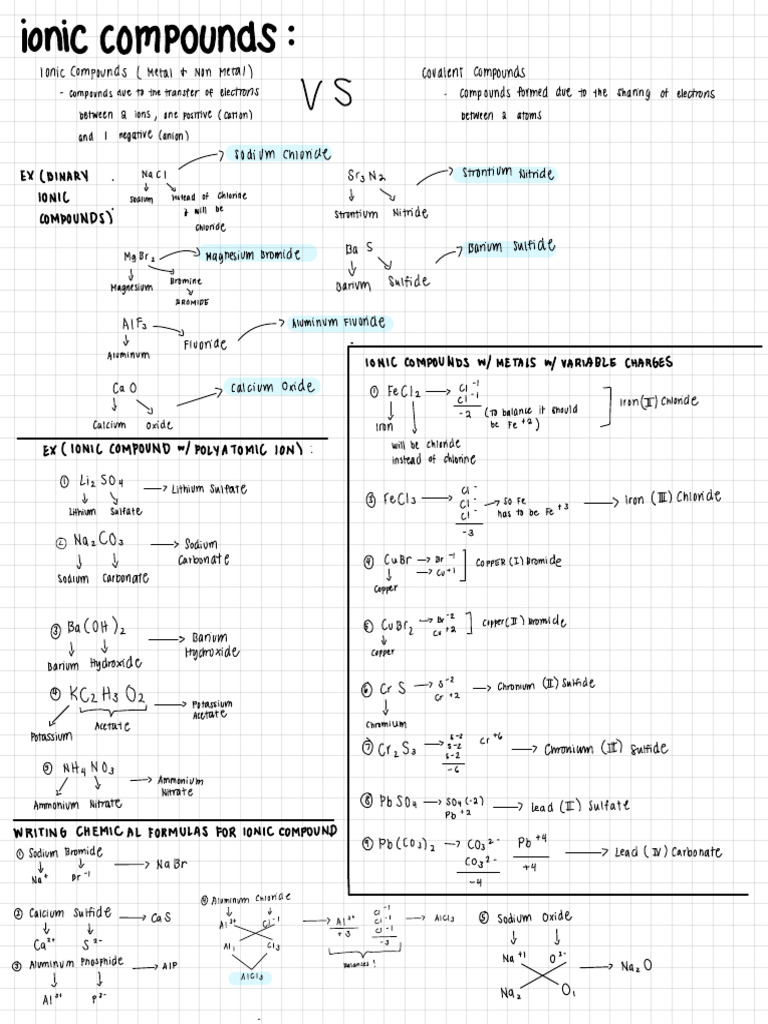 ionic compounds:
Ionic Compounds (Metal + Non Metal)
- compounds due to the transfer of electrons
between 2 ions, one positive (cation)
and 1 negative (anion)
VS
Covalent Compounds
- compounds formed due to the sharing of electrons
between 2 atoms
EX (BINARY
IONIC
COMPOUNDS):
NaCl
Sodium Chloride
Sodium
instead of Chlorine
it will be
chloride
Sr3N2
Strontium Nitride
Strontium Nitride
MgBr2
Magnesium Bromide
Magnesium
Bromine
BROMIDE
Ba S
Barium Sulfide
Barium Sulfide
AlF3
Fluoride
Aluminum Fluoride
Aluminum
Ca O
Calcium Oxide
Calcium Oxide
EX (IONIC COMPOUND W/ POLYATOMIC ION):
① Li2 SO4
Lithium Sulfate
Lithium Sulfate
② Na2CO3
Sodium
Carbonate
Sodium Carbonate
③ Ba(OH)2
Barium
Hydroxide
Barium Hydroxide
④ KC2H3O2
Potassium
Acetate
Acetate
Potassium
⑤ NH4 NO3
Ammonium
Nitrate
Ammonium Nitrate
IONIC COMPOUNDS W/ METALS W/ VARIABLE CHARGES
① FeCl2
Cl -1
Cl -1
-2
(to balance it should
be Fe +2)
Iron (II) Chloride
Iron
will be chloride
instead of chlorine
③ FeCl3
Cl -
Cl -
Cl -
-3
so Fe
has to be Fe +3
Iron (III) Chloride
④ CuBr
Br -1
Cu +1
COPPER (I) Bromide
Copper
⑤ CuBr2
Br -2
Cu +2
Copper (II) Bromide
Copper
⑥ Cr S
S -2
Cr +2
Chronium (II) Sulfide
Chromium
⑦ Cr2S3
S -2
S -2
S -2
-6
Cr +6
Chronium (III) Sulfide
⑧ PbSO4
SO4 (-2)
Pb +2
Lead (II) Sulfate
⑨ Pb(CO3)2
CO3 2-
CO3 2-
-4
Pb +4
+4
Lead (IV) Carbonate
WRITING CHEMICAL FORMULAS FOR IONIC COMPOUND
① Sodium Bromide
Na+
Br -1
NaBr
② Calcium Sulfide
CaS
Ca2+
S2-
③ Aluminum Phosphide
AlP
Al3+
P3-
④ Aluminum Chloride
Al3+
Cl-1
Al1
Cl3
AlCl3
Al3+
+3
Cl -1
Cl -1
Cl -1
-3
Balances!
AlCl3
⑤ Sodium Oxide
Na +1
O2-
Na2
O1
Na2O